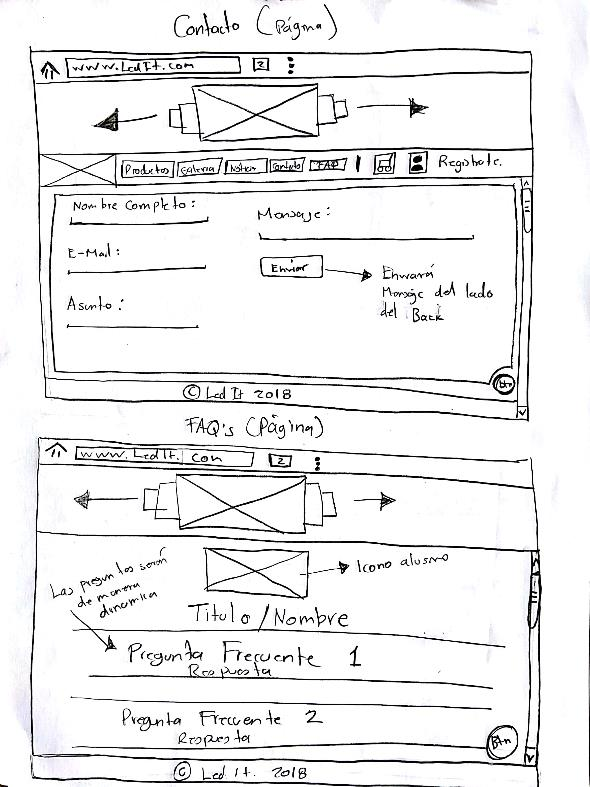 Contacto (Página)
www.LcdIt.com
2
Productos Galeria Noticias Contacto FAQ Registrate.
Nombre Completo:
Mensaje:
E-Mail:
Enviar
Enviará
Mensaje del lado
del Back
Asunto:
btn
© Lcd It 2018
FAQ's (Página)
www.LcdIt.com
2
Icono alusivo
Las preguntas serán
de manera
dinamica
Titulo/Nombre
Pregunta Frecuente 1
Respuesta
Pregunta Frecuente 2
Respuesta
Btn
© Lcd It. 2018